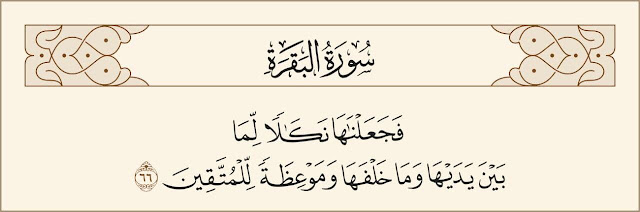 سُورَةُ البَقَرَةِ
فَجَعَلْنَٰهَا نَكَٰلًا لِّمَا
بَيْنَ يَدَيْهَا وَمَا خَلْفَهَا وَمَوْعِظَةً لِّلْمُتَّقِينَ ٦٦